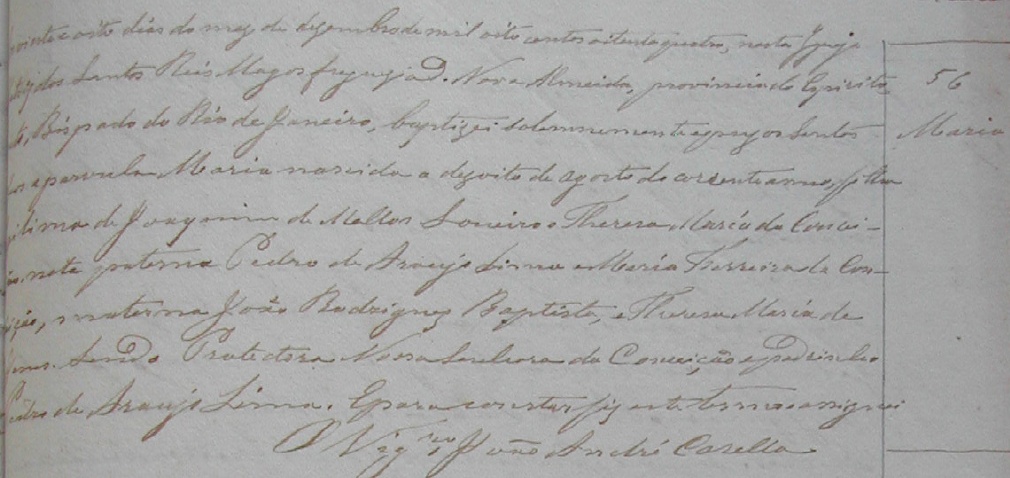 vinte e oito dias do mez de dezembro de mil oito centos oitenta quatro, nesta Igreja
dos Santos Reis Magos freguezia d. Nova Almeida, provincia do Espirito
Bispado do Rio de Janeiro, baptizei solemnemente e puz os Santos
a parvula Maria nascida a dezoito de agosto do corrente anno, filha
de Joaquim de Mattos Loureiro e Thereza Maria da Concei-
neta paterna Pedro de Araujo Lima e Maria Ferreira da Con-
materna João Rodrigues Baptista, e Thereza Maria de
Sendo Protectora Nossa Senhora da Conceição e padrinho
Pedro de Araujo Lima. E para constar fiz este termo e assignei
O Vigrº João André Casella
56
Maria